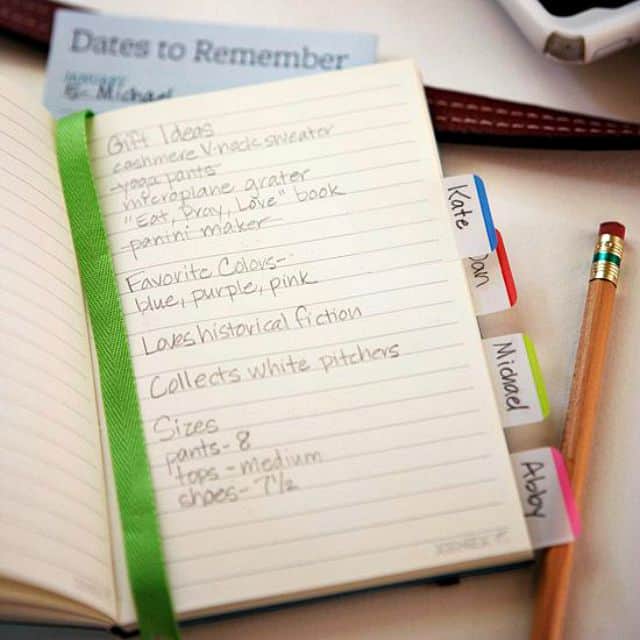 Dates to Remember
january
15- Michael
Gift Ideas
cashmere V-neck sweater
-yoga pants-
microplane grater
"Eat, Pray, Love" book
-panini maker-
Favorite Colors-
blue, purple, pink
Loves historical fiction
Collects white pitchers
Sizes
pants- 8
tops - medium
shoes- 7½
Kate
Dan
Michael
Abby